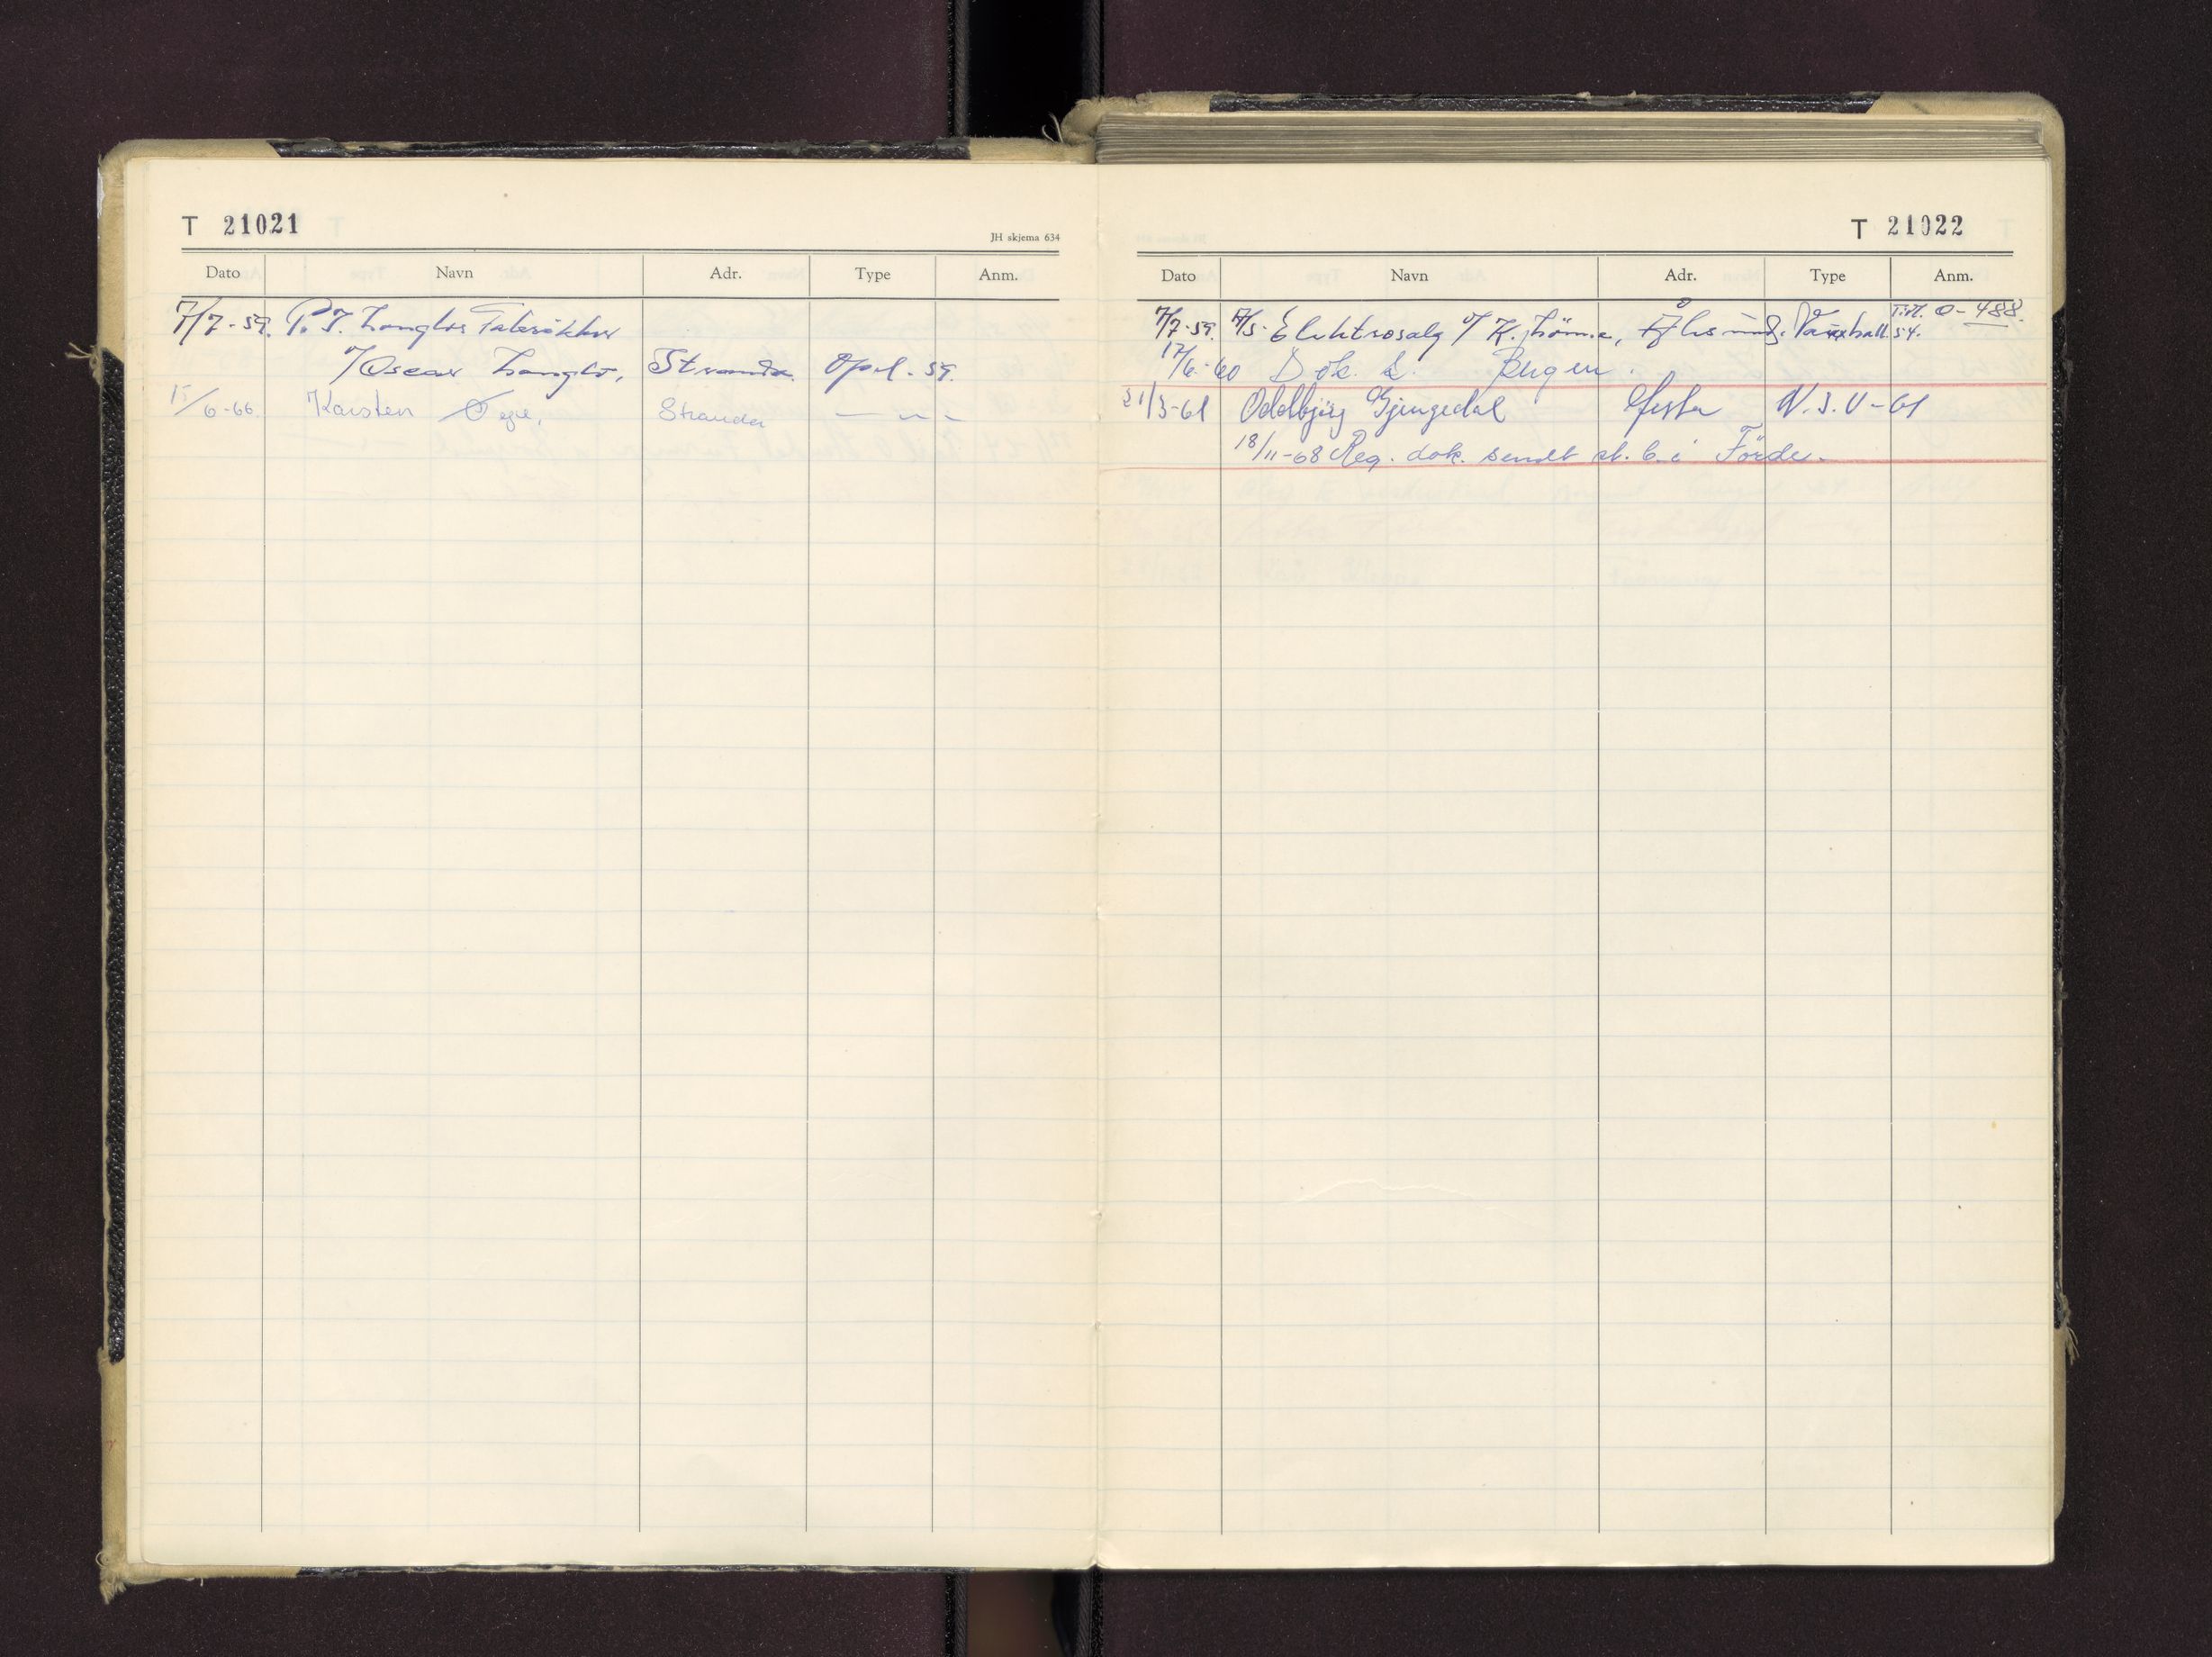 T 21021
JH skjema 634
Dato Navn Adr. Type Anm.
7/7-59. P. I. Langlos
%Oscar Langlo, Stranda. Opel. 59.
15/6-66. Karsten Øye, Stranda — „ —
T 21022
Dato Navn Adr. Type Anm.
7/7-59. A/S. Elektrosalg % K. Lömo, Ålesund. Vauxhall. 54. Tidl. O-488.
17/6-60 Dok. S. Bergen.
21/3-61 Oddbjörg Gjengedal N.S.U-61
18/11-68 Reg. dok. sendt st. b. i Förde.